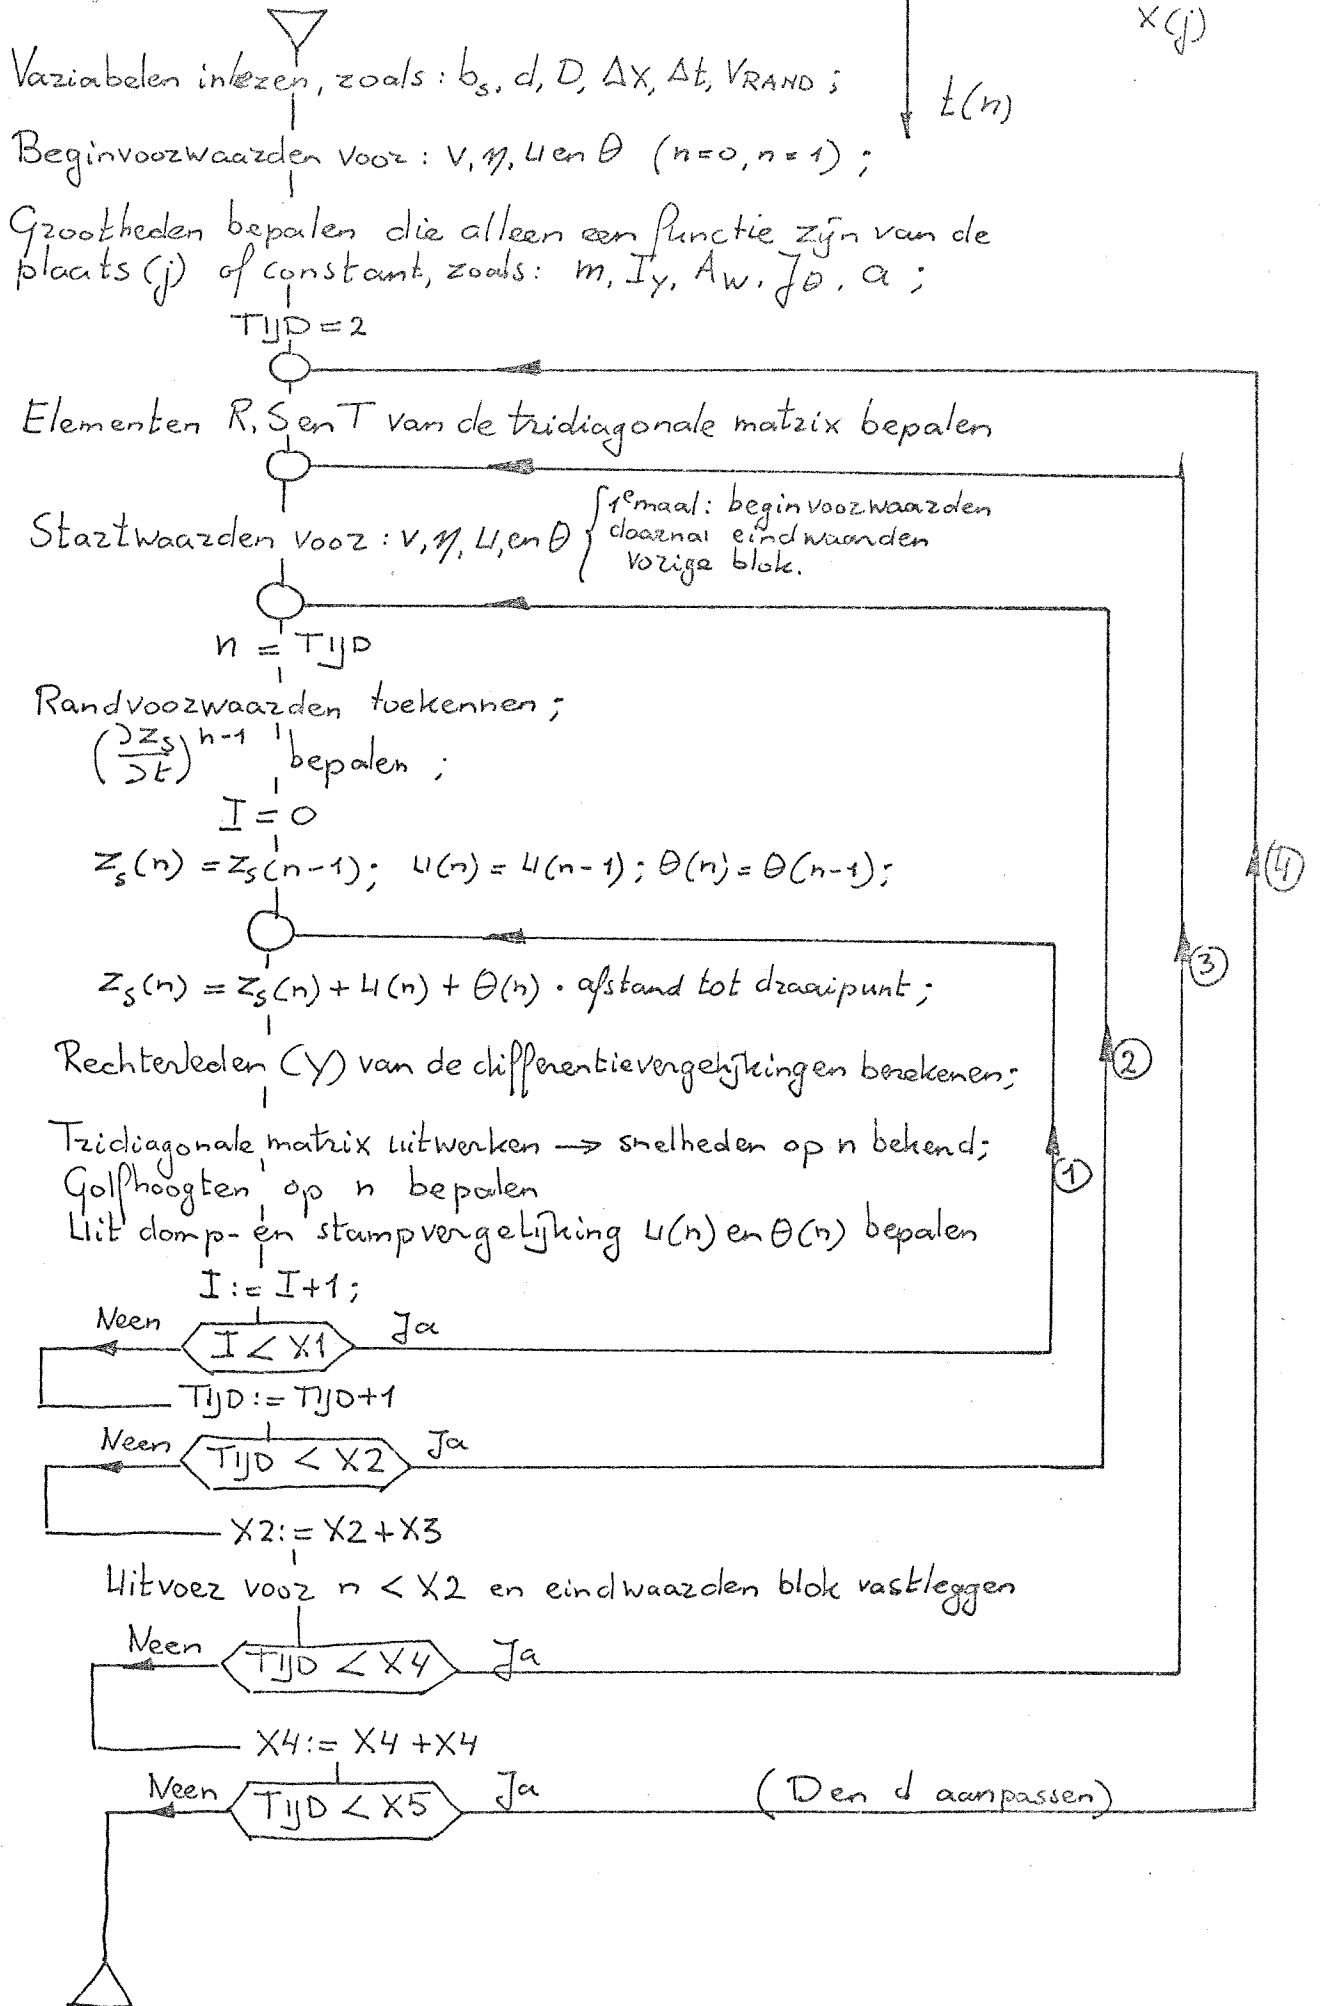 x(j)
Variabelen inlezen, zoals : bs, d, D, Δx, Δt, VRAND ;
t(n)
Beginvoorwaarden voor : v, η, u en θ (n=0, n=1) ;
Grootheden bepalen die alleen een functie zijn van de
plaats (j) of constant, zoals: m, Iy, Aw, Jθ, a ;
TIJD = 2
Elementen R, S en T van de tridiagonale matrix bepalen
Startwaarden voor : v, η, u, en θ { 1e maal: beginvoorwaarden
daarna: eindwaarden
vorige blok.
n = TIJD
Randvoorwaarden toekennen ;
(∂zs/∂t)^n-1 bepalen ;
I = 0
zs(n) = zs(n-1); u(n) = u(n-1) ; θ(n) = θ(n-1);
④
zs(n) = zs(n) + u(n) + θ(n) · afstand tot draaipunt ;
③
Rechterleden (Y) van de differentievergelijkingen berekenen;
②
Tridiagonale matrix uitwerken → snelheden op n bekend;
①
Golfhoogten op n bepalen
Uit domp- en stampvergelijking u(n) en θ(n) bepalen
I := I+1 ;
Neen I < X1 Ja
TIJD := TIJD+1
Neen TIJD < X2 Ja
X2 := X2 + X3
Uitvoer voor n < X2 en eindwaarden blok vastleggen
Neen TIJD < X4 Ja
X4 := X4 + X4
Neen TIJD < X5 Ja (D en d aanpassen)